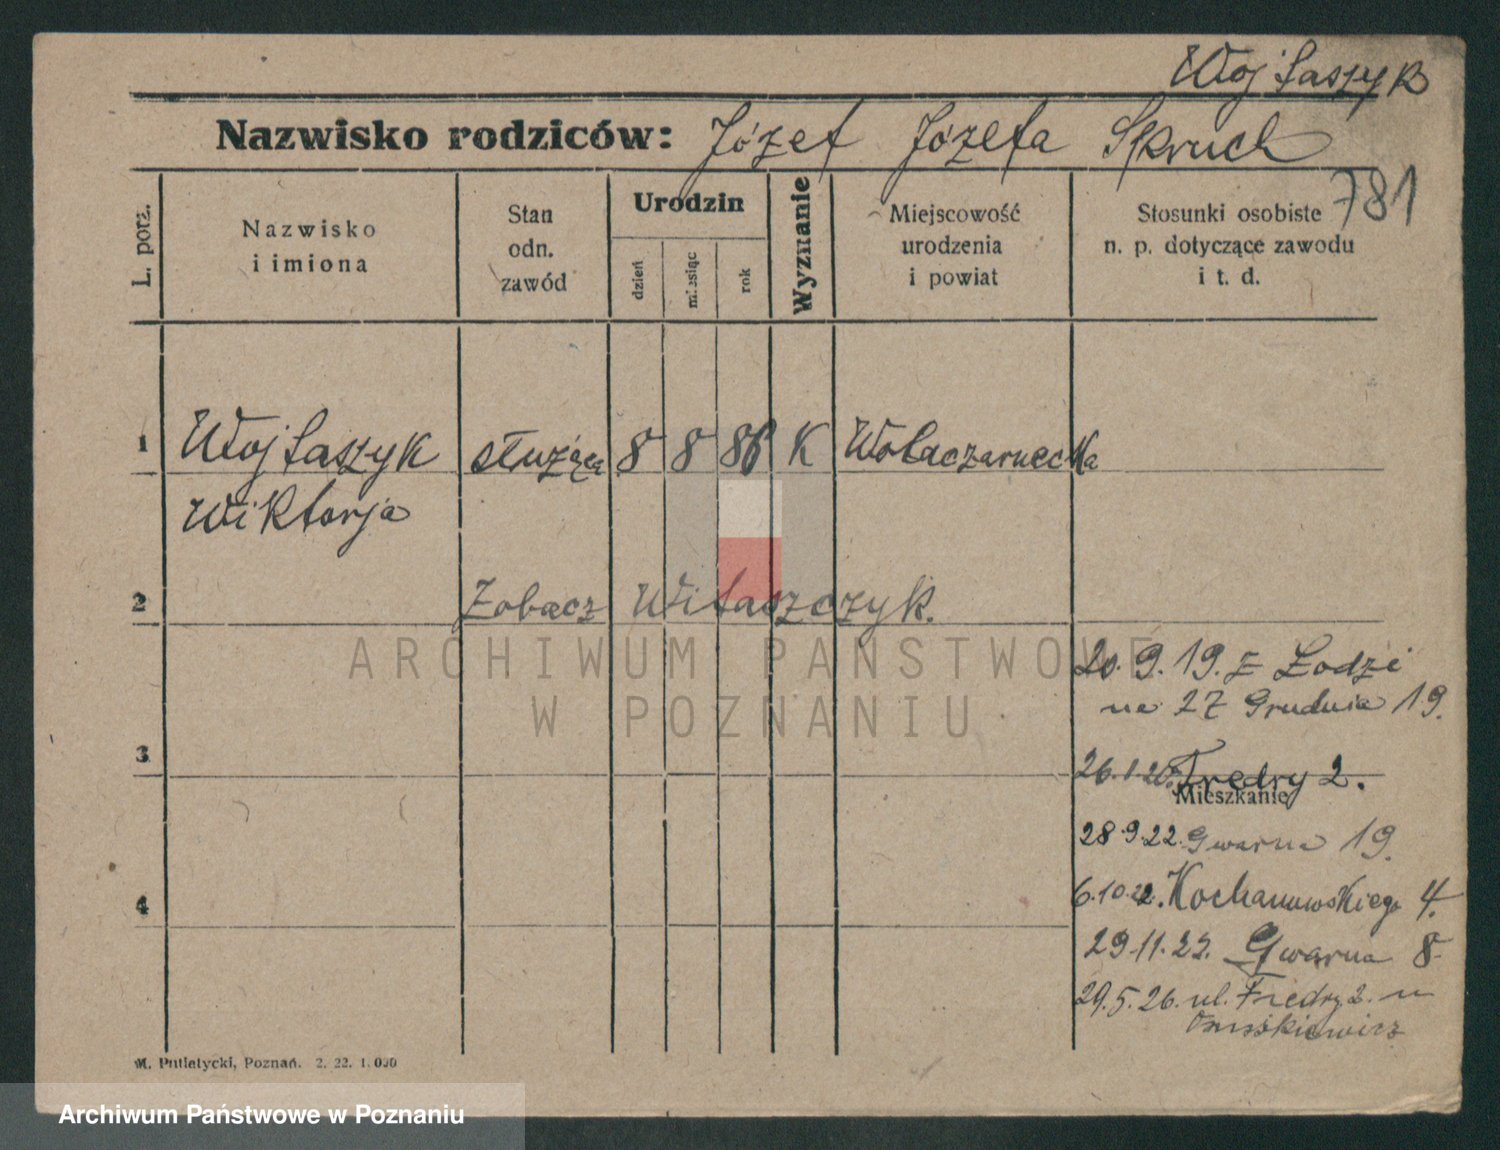 Wojtaszyk
Nazwisko rodziców: Józef Józefa Skruch
781
L. porz.
Nazwisko
i imiona
Stan
odn.
zawód
Urodzin
dzień
miesiąc
rok
Wyznanie
Miejscowość
urodzenia
i powiat
Stosunki osobiste
n. p. dotyczące zawodu
i t. d.
1 Wojtaszyk służąca 8 8 86 K Wola czarnecka
Wiktorja
2 Zobacz Witaszczyk.
ARCHIWUM PAŃSTWOWE
W POZNANIU
20.9.19. z Łodzi
na 27 Grudnia 19.
3
26.1.20. Fredry 2.
Mieszkanie
28.9.22. Gwarna 19.
6.10.22. Kochanowskiego 4.
4
29.11.22. Gwarna 8
29.5.26. ul. Fredry 2. u
M. Putiatycki, Poznań. 2. 22. 1.000
Archiwum Państwowe w Poznaniu